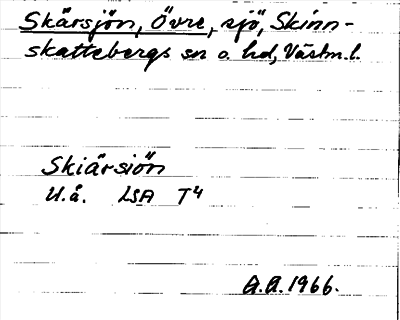 Skärsjön, Övre, sjö, Skinn-
skattebergs sn o. hd, Västm.l.
Skiärsiön
U.å. LSA T4
A.A. 1966.